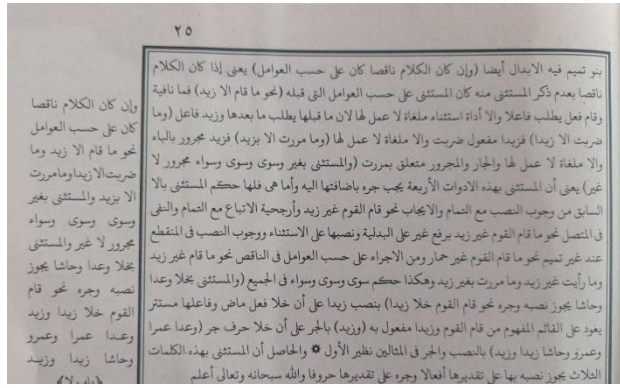 ٢٥
بنو تميم فيه الابدال أيضا (وإن كان الكلام ناقصا كان على حسب العوامل) يعنى إذا كان الكلام
ناقصا بعدم ذكر المستثنى منه كان المستثنى على حسب العوامل التى قبله (نحو ما قام الا زيد) فما نافية
وقام فعل يطلب فاعلا والا أداة استثناء ملغاة لا عمل لها لان ما قبلها يطلب ما بعدها وزيد فاعل (وما
ضربت الا زيدا) فزيدا مفعول ضربت والا ملغاة لا عمل لها (وما مررت الا بزيد) فزيد مجرور بالباء
والا ملغاة لا عمل لها والجار والمجرور متعلق بمررت (والمستثنى بغير وسوى وسوى وسواء مجرور لا
غير) يعنى أن المستثنى بهذه الادوات الأربعة يجب جره باضافتها اليه وأما هى فلها حكم المستثنى بالا
السابق من وجوب النصب مع التمام والايجاب نحو قام القوم غير زيد وأرجحية الاتباع مع التمام والنفى
فى المتصل نحو ما قام القوم غير زيد برفع غير على البدلية ونصبها على الاستثناء ووجوب النصب فى المنقطع
عند غير تميم نحو ما قام القوم غير حمار ومن الاجراء على حسب العوامل فى الناقص نحو ما قام غير زيد
وما رأيت غير زيد وما مررت بغير زيد وهكذا حكم سوى وسوى وسواء فى الجميع (والمستثنى بخلا وعدا
وحاشا يجوز نصبه وجره نحو قام القوم خلا زيدا) بنصب زيدا على أن خلا فعل ماض وفاعلها مستتر
يعود على القائم المفهوم من قام القوم وزيدا مفعول به (وزيد) بالجر على أن خلا حرف جر (وعدا عمرا
وعمرو وحاشا زيدا وزيد) بالنصب والجر فى المثالين نظير الأول * والحاصل أن المستثنى بهذه الكلمات
الثلاث يجوز نصبه بها على تقديرها أفعالا وجره على تقديرها حروفا والله سبحانه وتعالى أعلم
وإن كان الكلام ناقصا
كان على حسب العوامل
نحو ما قام الا زيد وما
ضربت الا زيدا وما مررت
الا بزيد والمستثنى بغير
وسوى وسوى وسواء
مجرور لا غير والمستثنى
بخلا وعدا وحاشا يجوز
نصبه وجره نحو قام
القوم خلا زيدا وزيد
وعدا عمرا وعمرو
وحاشا زيدا وزيد
﴿باب لا﴾